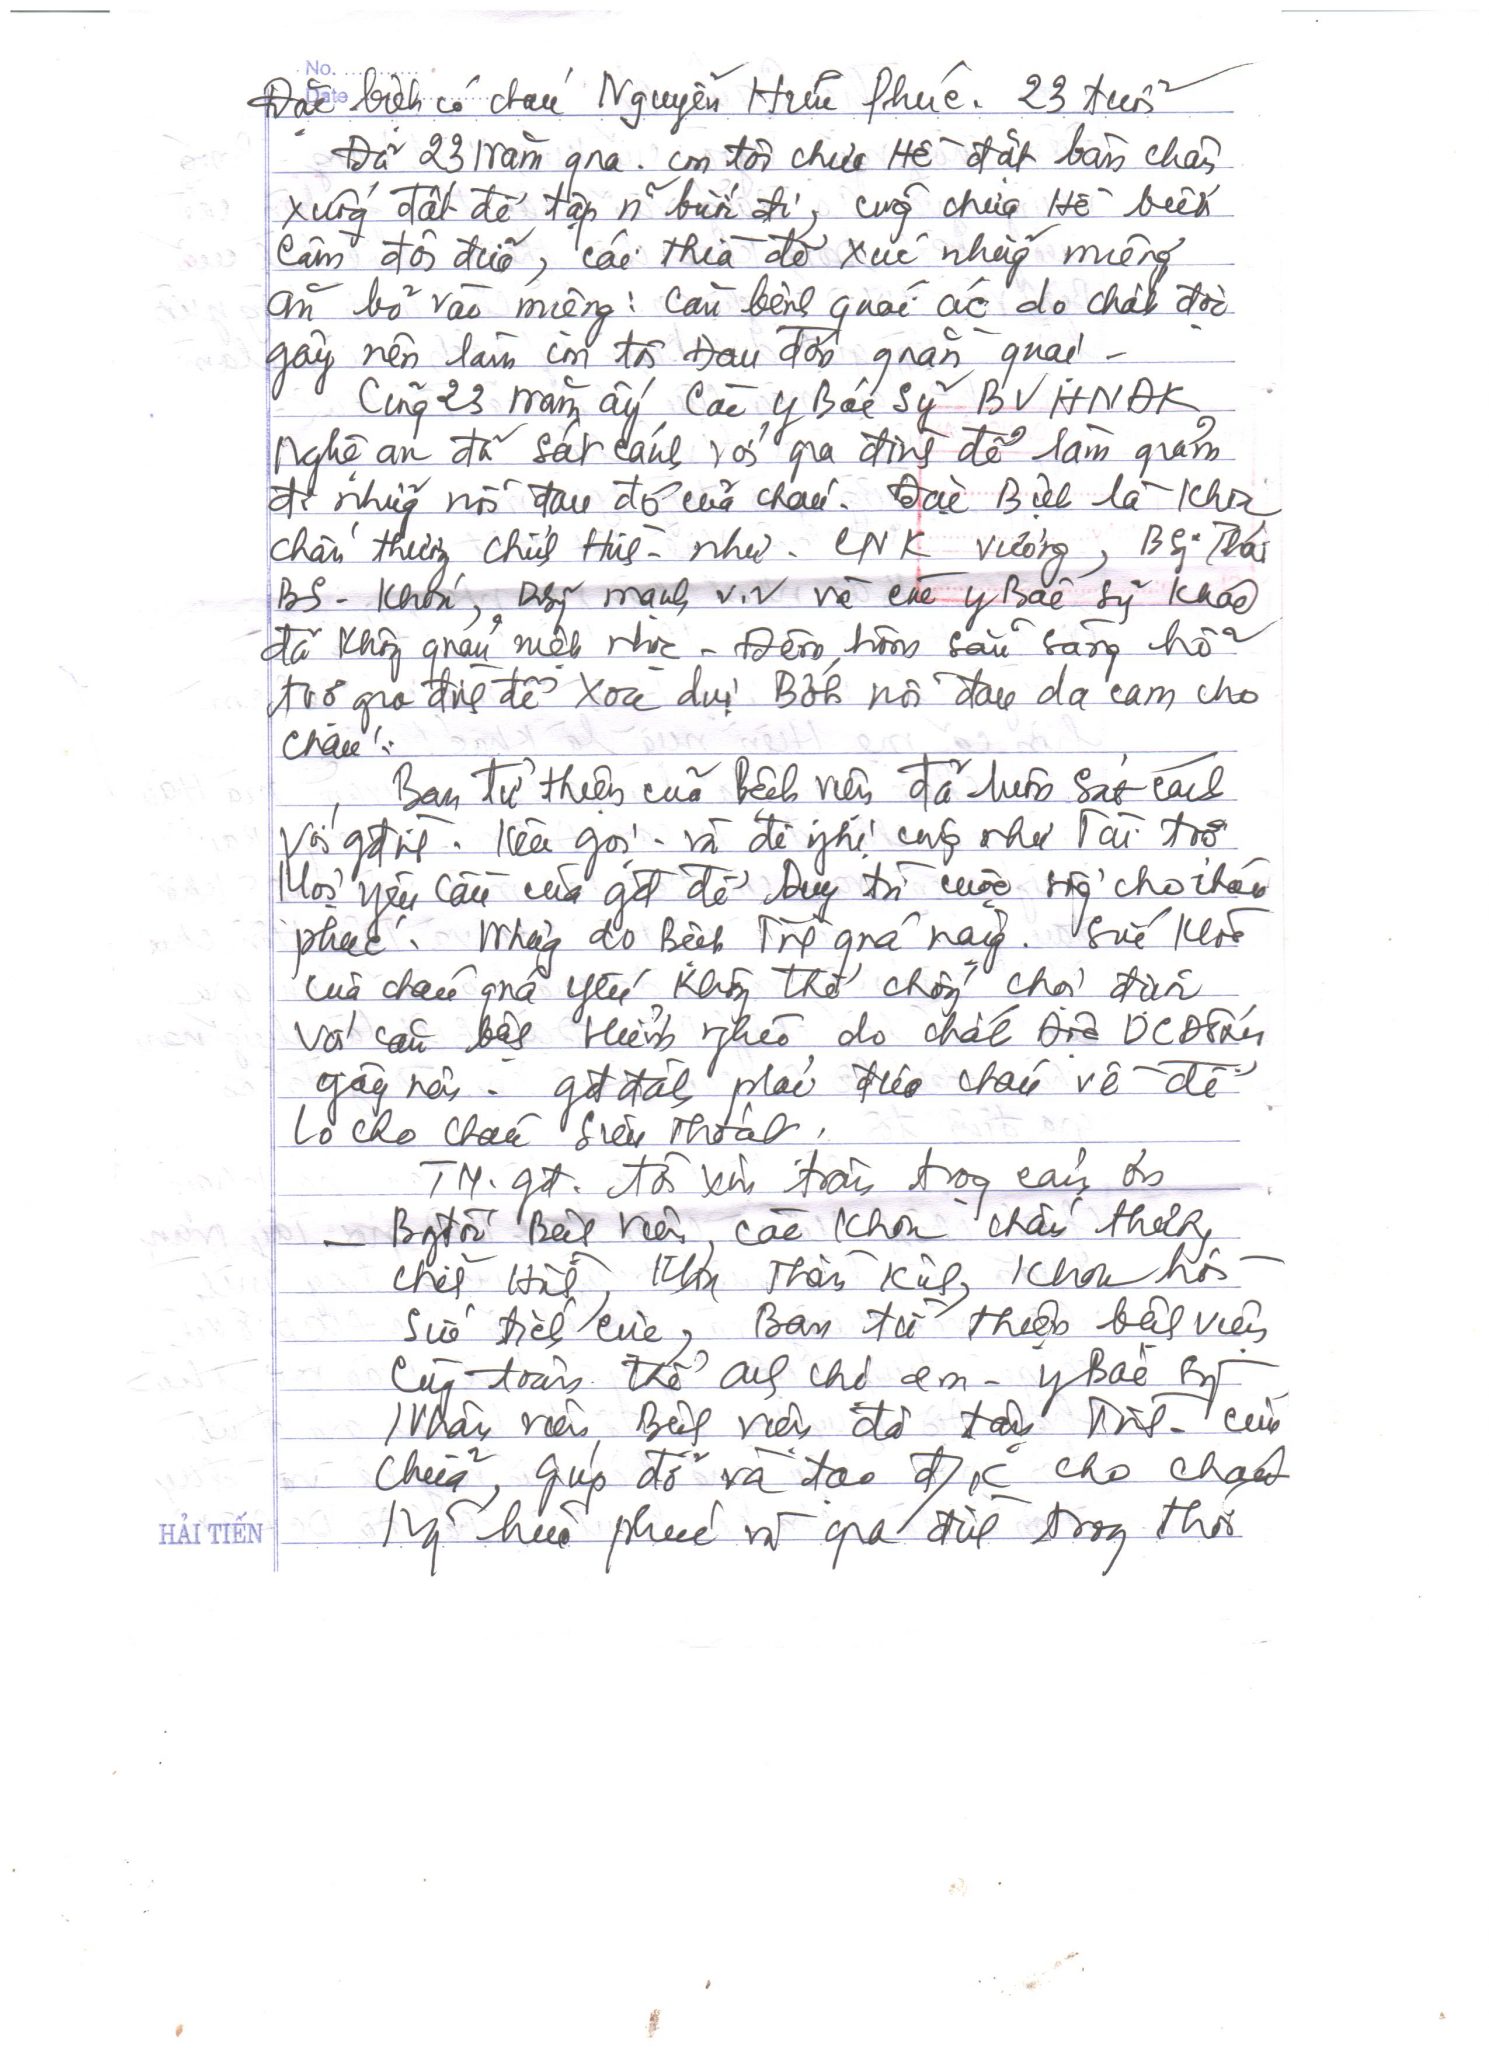 No. ............
Date ............
Đặc biệt có cháu Nguyễn Hữu Phúc. 23 tuổi
Đã 23 năm qua. con tôi chưa Hề đặt bàn chân
xuống đất để tập những bước đi, cũng chưa Hề biết
Cầm đôi đũa, cái thìa để xúc những miếng
ăn bỏ vào miệng! Căn bệnh quái ác do chất độc
gây nên làm con tôi Đau đớn quằn quại -
Cũng 23 năm ấy Các y Bác Sỹ BV HNĐK
Nghệ an đã sát cánh với gia đình để làm giảm
đi những nỗi đau đó của cháu. Đặc Biệt là Khoa
chấn thương chỉnh Hình - như. CNK Vương, BSỹ Thái
BS - Khoa, BSỹ mạnh v.v và các y Bác sỹ khác
đã không quản mệt nhọc - Đêm hôm sẵn sàng hỗ
trợ gia đình để xoa dịu Bớt nỗi đau da cam cho
cháu!
Ban từ thiện của bệnh viện đã luôn Sát cánh
với gđình. Kêu gọi - và đề nghị cũng như Tài trợ
Mọi yêu cầu của gđ để Duy trì cuộc sống cho cháu
phúc. Nhưng do Bệnh Tình quá nặng. Sức khỏe
của cháu quá yếu không thể chống chọi được
với căn bệnh Hiểm nghèo do chất Độc DC
gây nên. gđ đành phải đưa cháu về để
lo cho cháu siêu thoát.
TM. gđ. tôi xin trân trọng cảm ơn
- Bgđốc Bệnh viện, các Khoa chấn thương
chỉnh Hình, Khoa Thần Kinh, Khoa hồi
sức tích cực, Ban từ thiện bệnh viện
Cùng toàn thể anh chị em - y Bác sỹ
Nhân viên Bệnh viện đã tận Tình - cứu
chữa, giúp đỡ và tạo đ/k cho cháu
Ng hữu phúc và gia đình trong thời
HẢI TIẾN